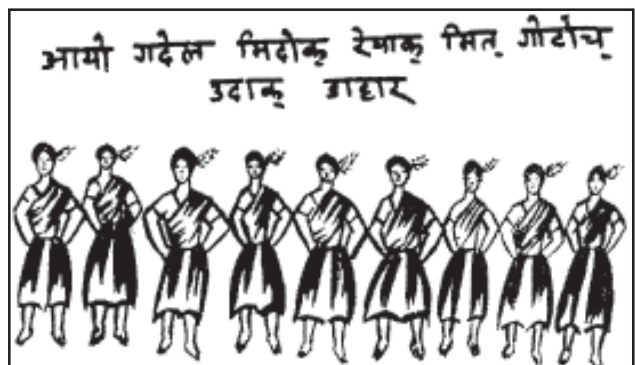 आयो गदेल मिदोक् रेयाक् मित् गोटोच्
उदाक् डाहार